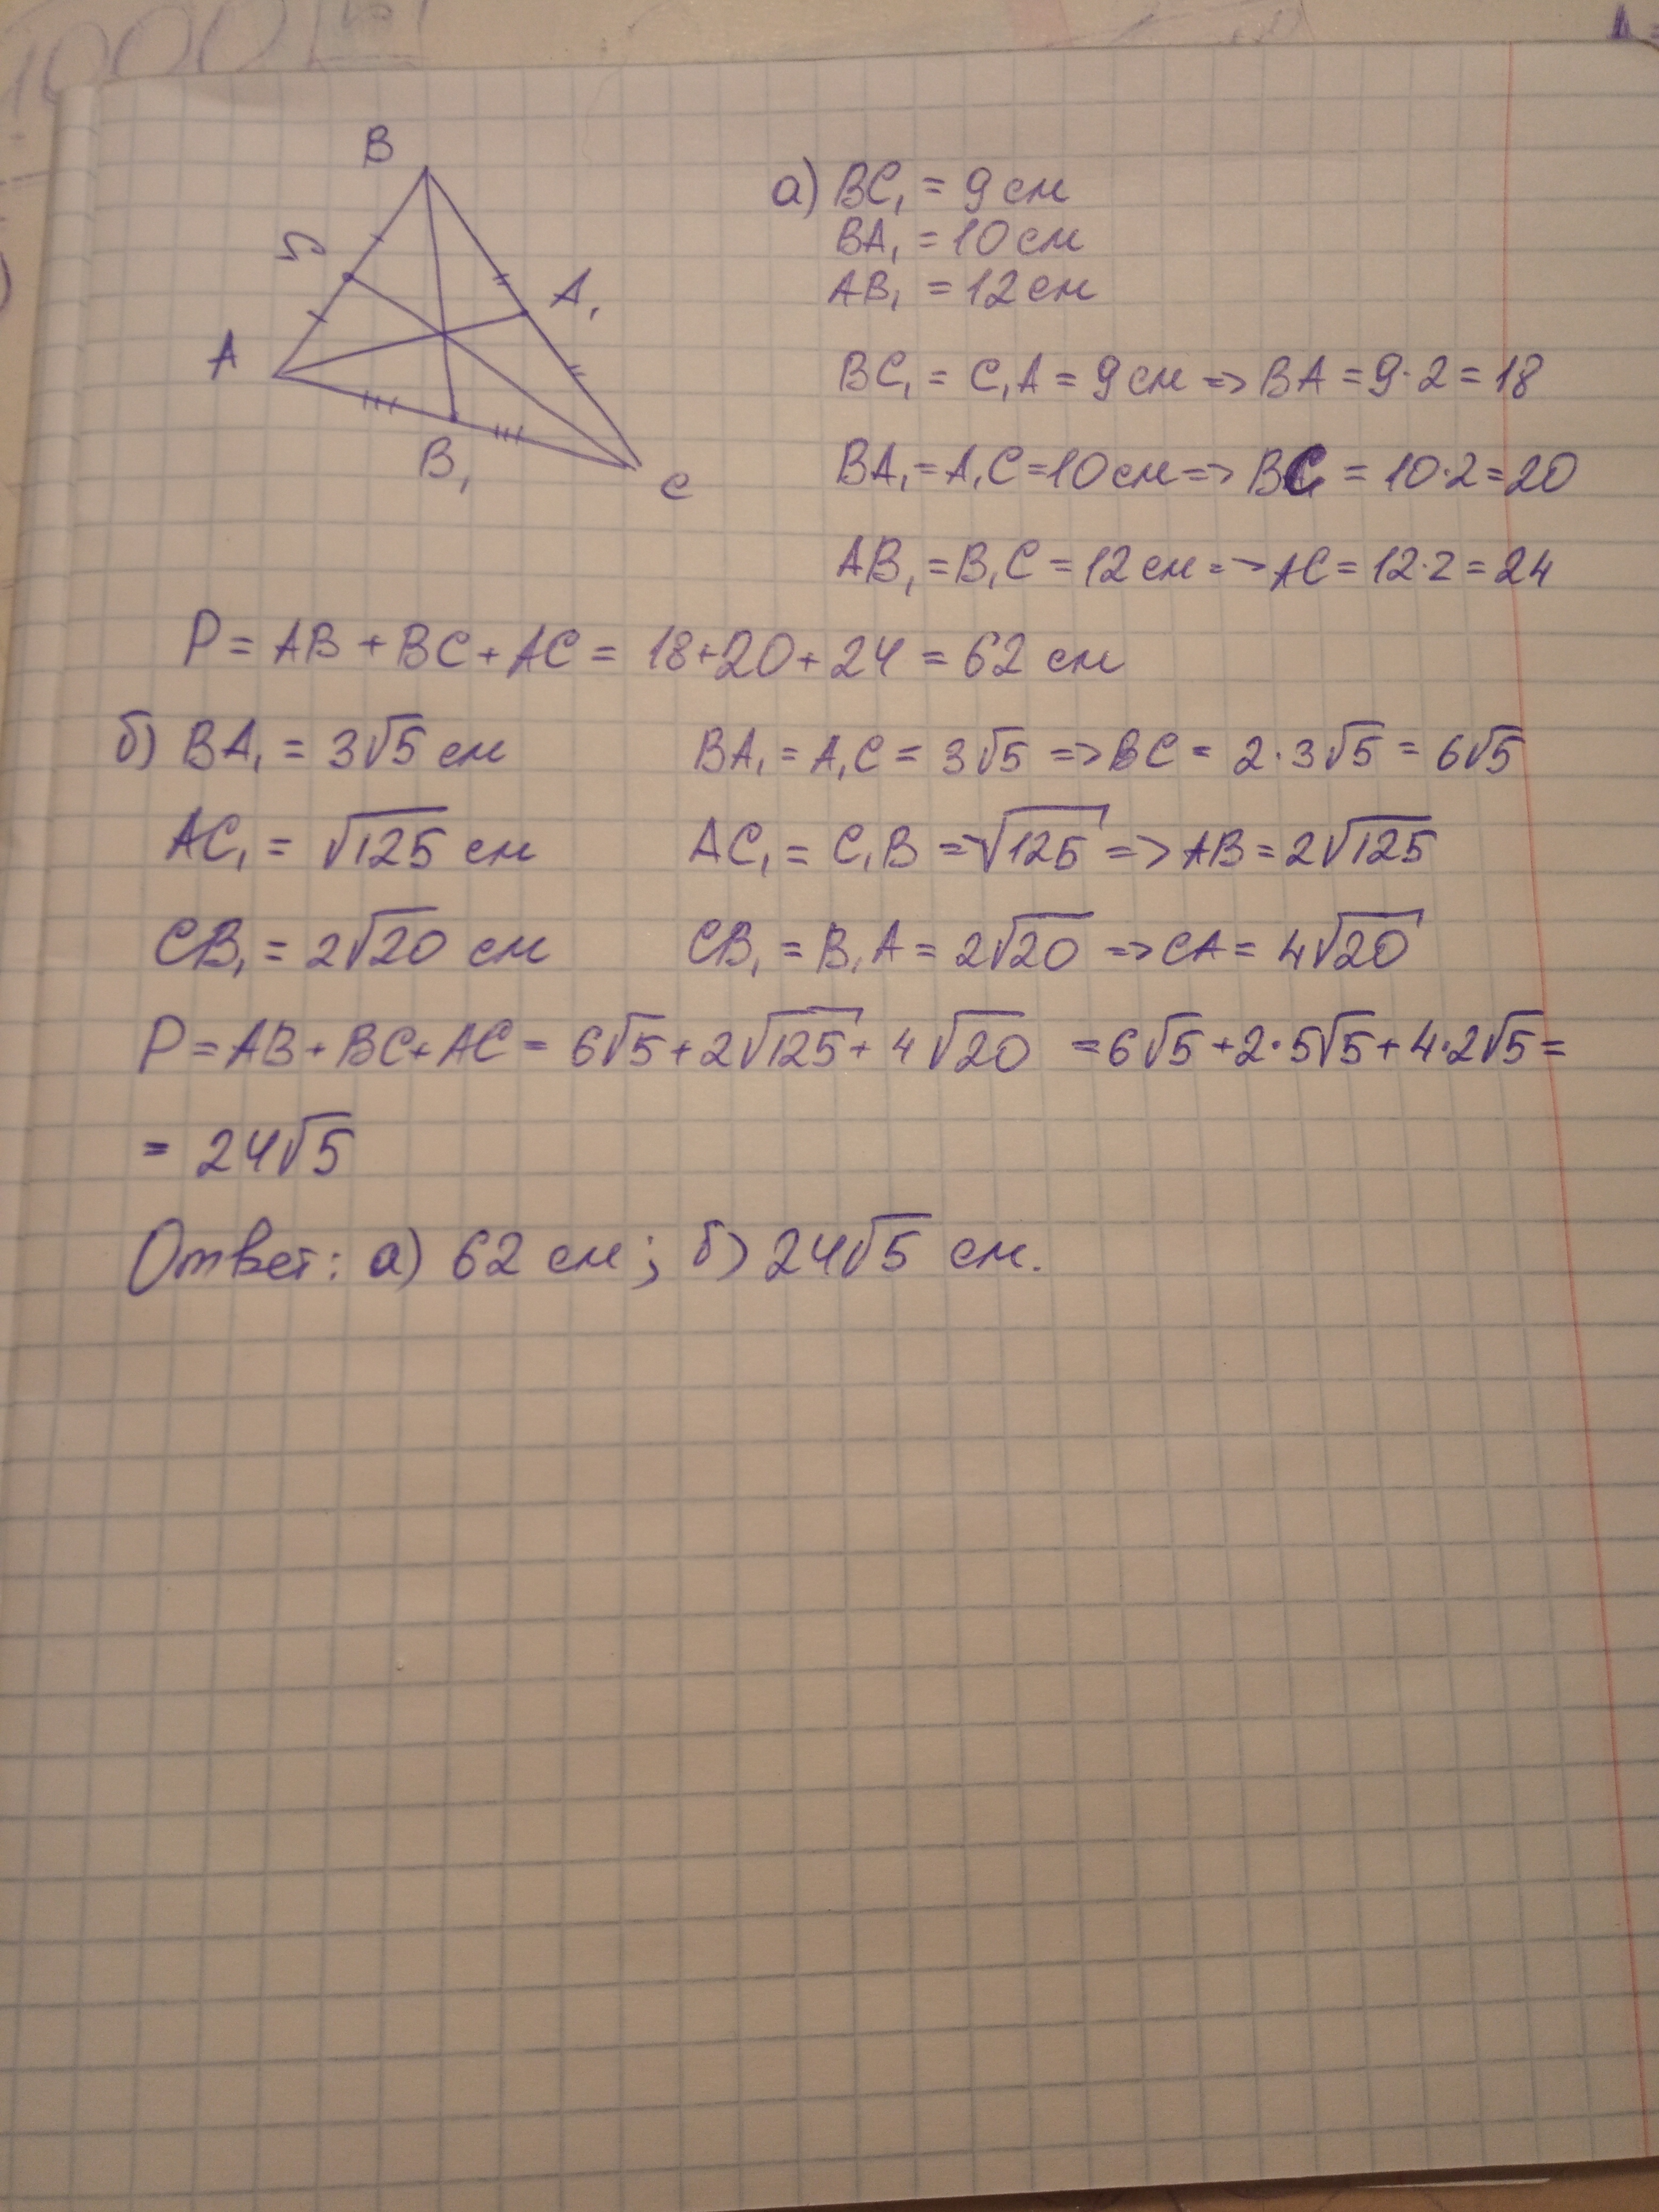 1000
B
C₁
A₁
A
B₁
C
а) BC₁ = 9 см
BA₁ = 10 см
AB₁ = 12 см
BC₁ = C₁A = 9 см => BA = 9·2 = 18
BA₁ = A₁C = 10 см => BC = 10·2 = 20
AB₁ = B₁C = 12 см => AC = 12·2 = 24
P = AB + BC + AC = 18+20+24 = 62 см
б) BA₁ = 3√5 см BA₁ = A₁C = 3√5 => BC = 2·3√5 = 6√5
AC₁ = √125 см AC₁ = C₁B = √125 => AB = 2√125
CB₁ = 2√20 см CB₁ = B₁A = 2√20 => CA = 4√20
P = AB + BC + AC = 6√5 + 2√125 + 4√20 = 6√5 + 2·5√5 + 4·2√5 =
= 24√5
Ответ: а) 62 см; б) 24√5 см.